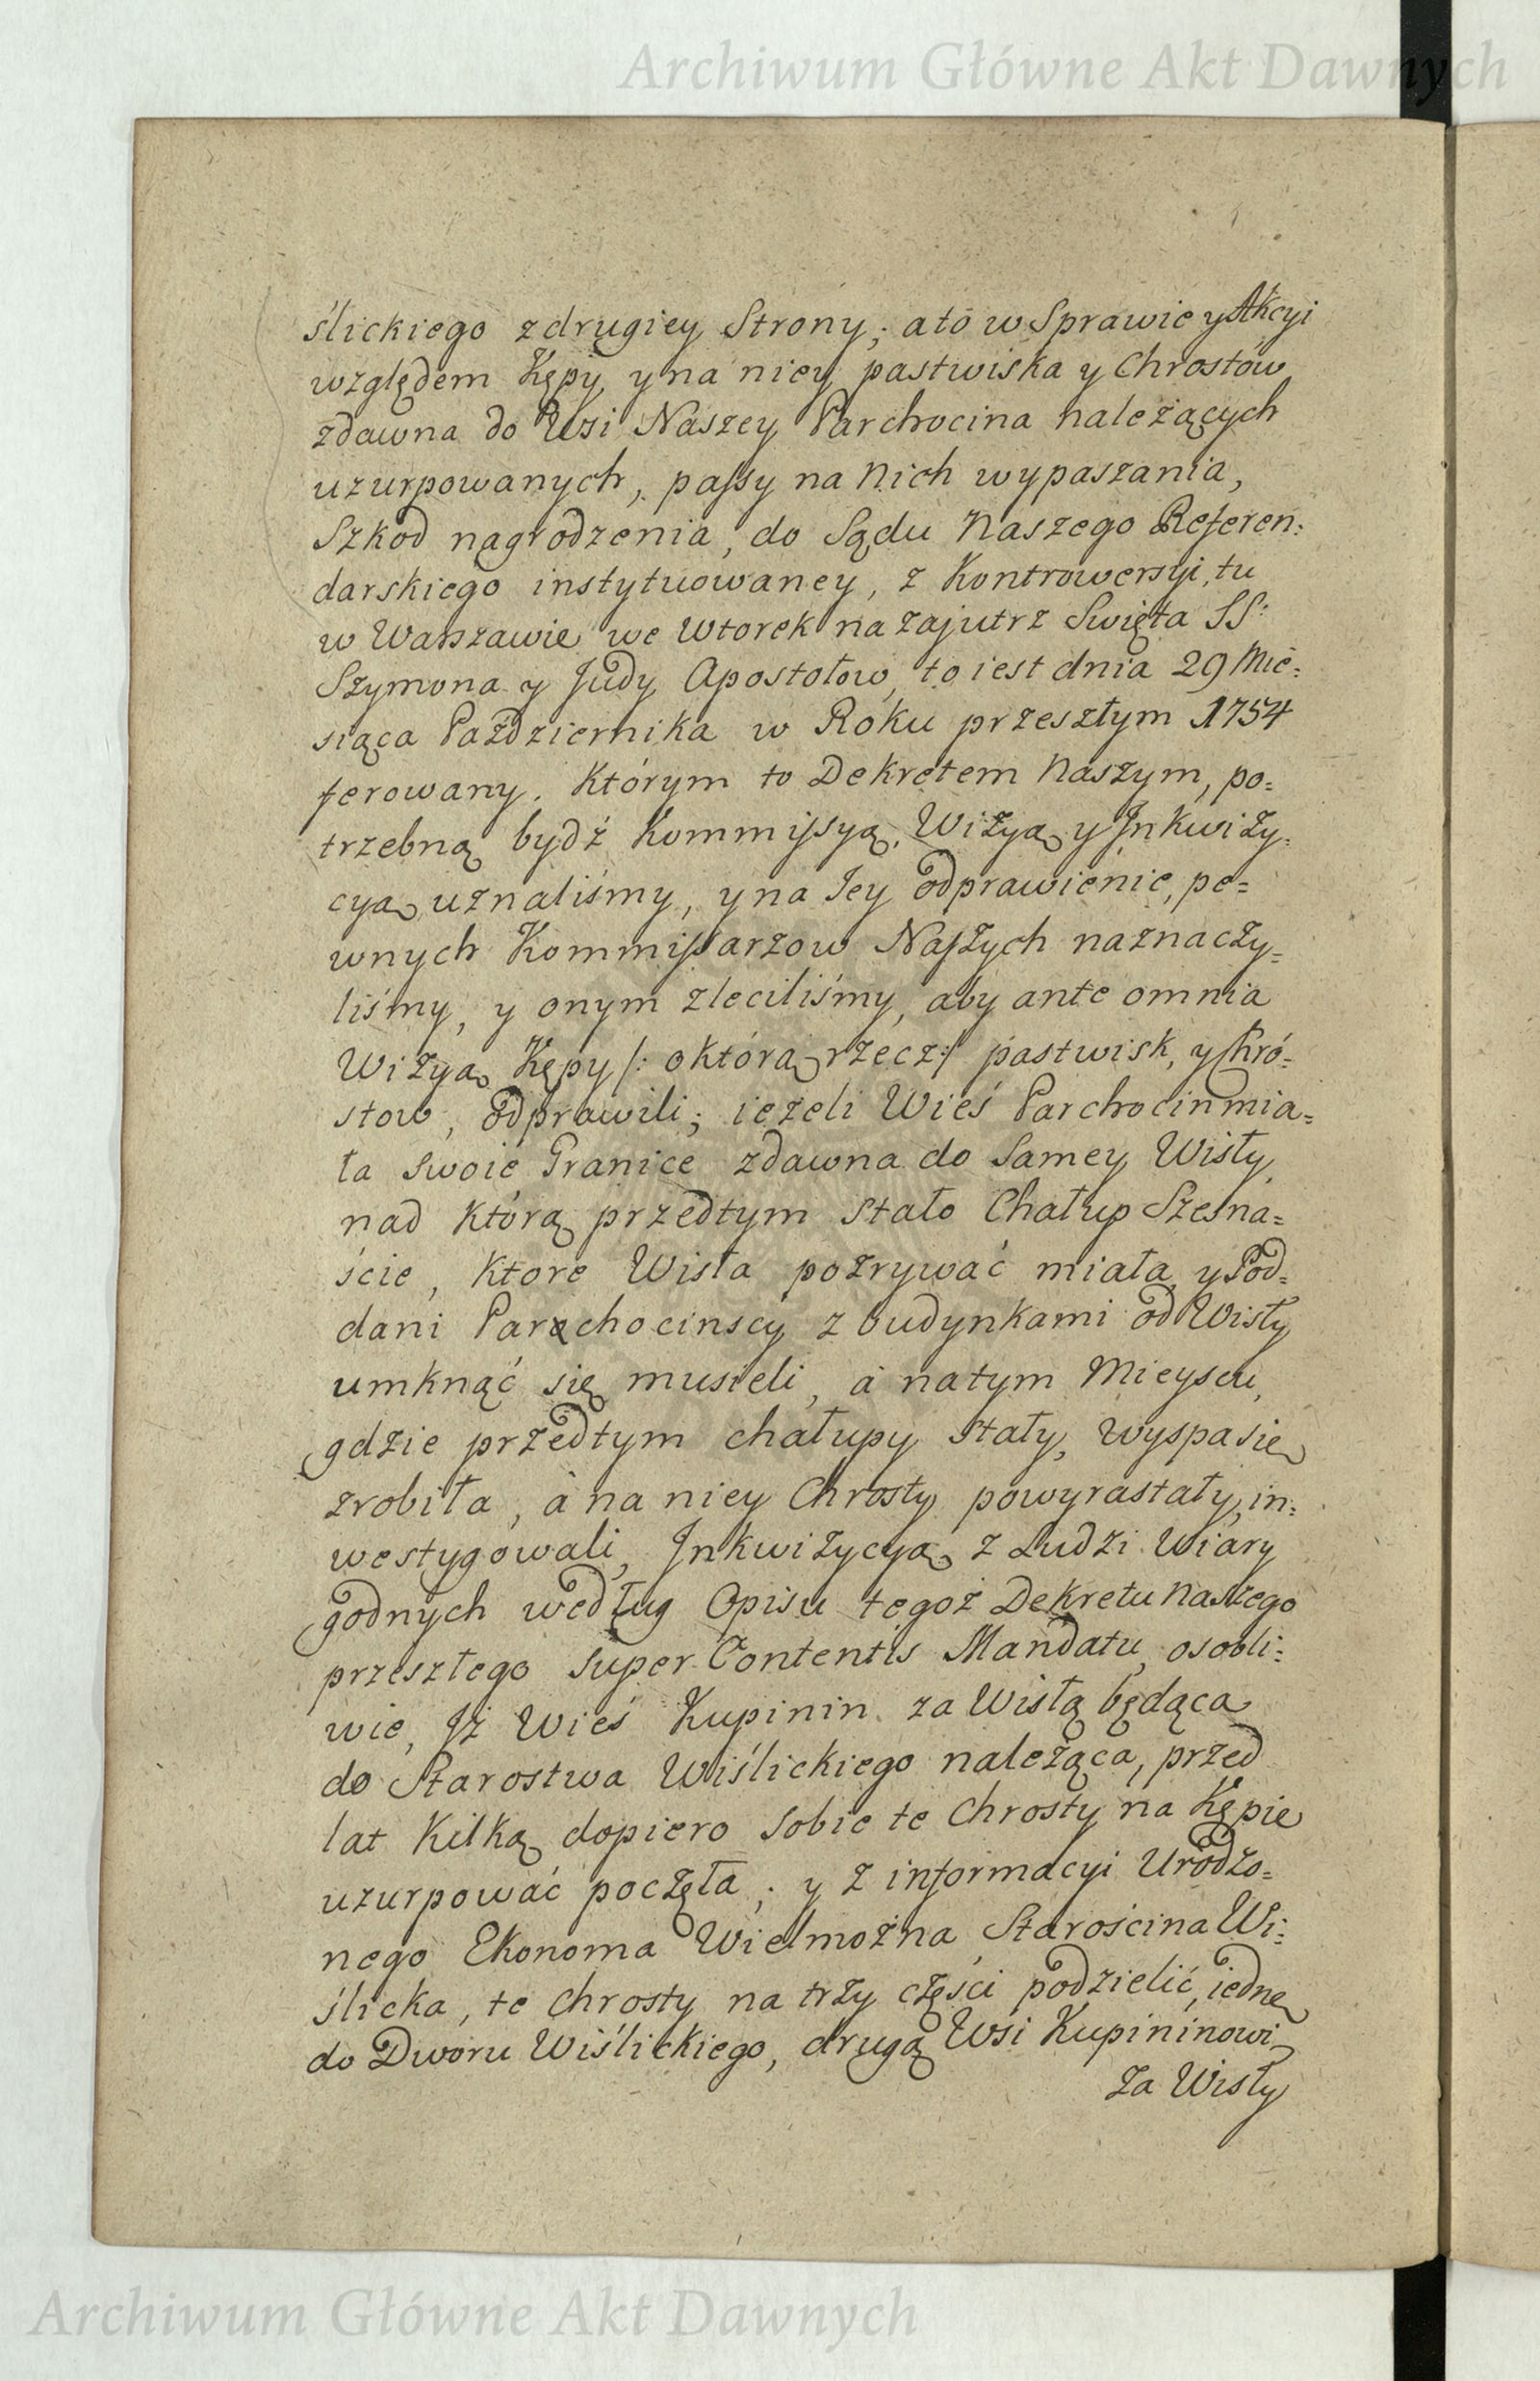 Archiwum Główne Akt Dawnych
ślickiego z drugiey Strony; a to w Sprawie y Akcyi
względem Kępy, y na niey pastwiska y Chrostów
zdawna do Wsi Naszey Parchocina należących
uzurpowanych, passy na Nich wypaszania,
Szkod nagrodzenia, do Sądu Naszego Referen:
darskiego instytuowaney, z Kontrowersyi, tu
w Warszawie we Wtorek nazajutrz Swięta SS:
Szymona y Judy Apostołow, to iest dnia 29 Mie:
siąca Październnika w Roku przeszłym 1754
ferowany. Którym to Dekretem Naszym, po=
trzebną bydź Kommissyą, Wizyą y Inkwizy=
cyą uznaliśmy, y na Jey odprawienie, pe=
wnych Kommissarzow Naszych naznaczy=
liśmy, y onym zleciliśmy, aby ante omnia
Wizyą Kępy /: o którą rzecz :/ pastwisk, y Chró=
stow, odprawili; ieżeli Wieś Parchocin mia=
ła swoie Granice zdawna do Samey Wisły,
nad którą przedtym stało Chałup Szesna=
ście, ktore Wisła pozrywać miała, y Pod=
dani Parchocinscy z budynkami od Wisły
umknąć się musieli, à na tym Mieyscu,
gdzie przedtym chałupy stały, wyspa się
zrobiła, à na niey Chrosty powyrastały, in:
westygowali, Inkwizycyą z Ludzi Wiary
godnych według Opisu tegoż Dekretu naszego
przeszłego super Contentis Mandatu, osobli:
wie, Iż Wieś Kupinin za Wisłą będąca
do Starostwa Wiślickiego należąca, przed
lat Kilką dopiero sobie te Chrosty na Kępie
uzurpować poczęła; y z informacyi Urodzo=
nego Ekonoma Wielmożna Starościna Wi:
ślicka, te chrosty na trzy części podzielić, iednę
do Dworu Wiślickiego, drugą Wsi Kupininowi
za Wisły
Archiwum Główne Akt Dawnych